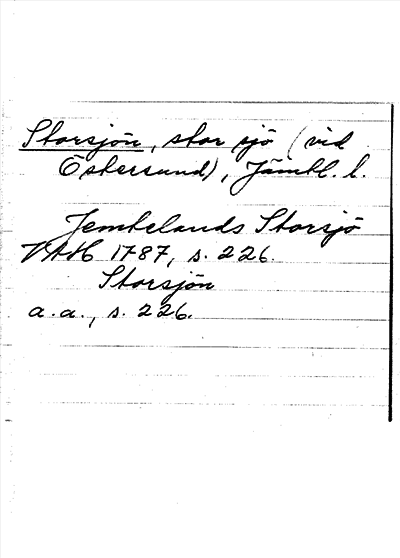 Storsjön, stor sjö (vid
Östersund), Jämtl. l.
Jemtelands Storsjö
VAH 1787, s. 226.
Storsjön
a. a., s. 226.